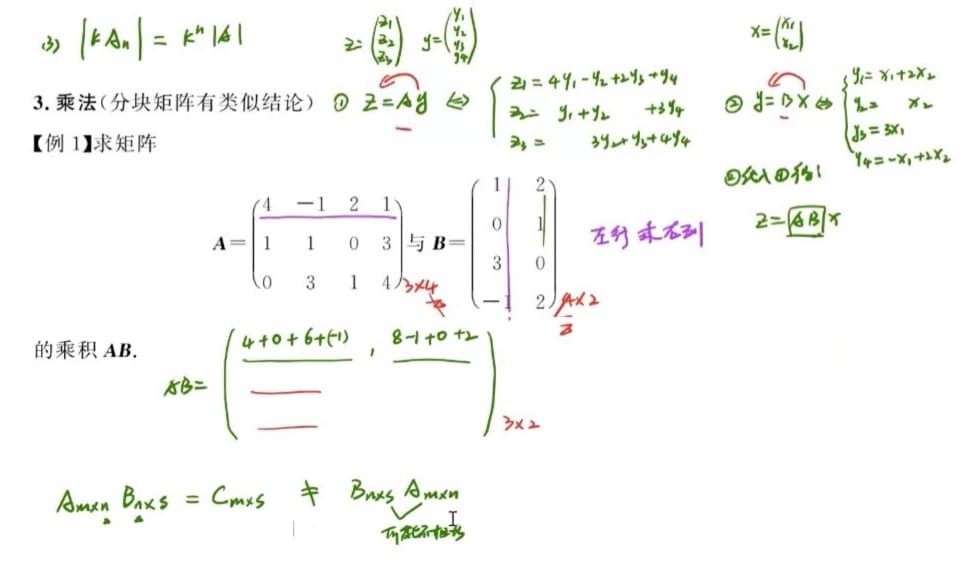 (3) |kAₙ| = kⁿ|A|
z=(z₁ z₂ z₃) y=(y₁ y₂ y₃ y₄)
x=(x₁ x₂)
3. 乘法(分块矩阵有类似结论) ① z=Ay ⇔
z₁=4y₁-y₂+2y₃+y₄
z₂= y₁+y₂ +3y₄
z₃= 3y₂+y₃+4y₄
② y=Bx ⇔
y₁=x₁+2x₂
y₂= x₂
y₃=3x₁
y₄=-x₁+2x₂
②代入①得:
z=ABx
【例 1】求矩阵
A=
4 -1 2 1
1 1 0 3
0 3 1 4
3×4
与 B=
1 2
0 1
3 0
-1 2
4×2
左行乘右列
的乘积 AB.
AB=
4+0+6+(-1) , 8-1+0+2
3×2
Aₘₓₙ Bₙₓₛ = Cₘₓₛ ≠ Bₙₓₛ Aₘₓₙ